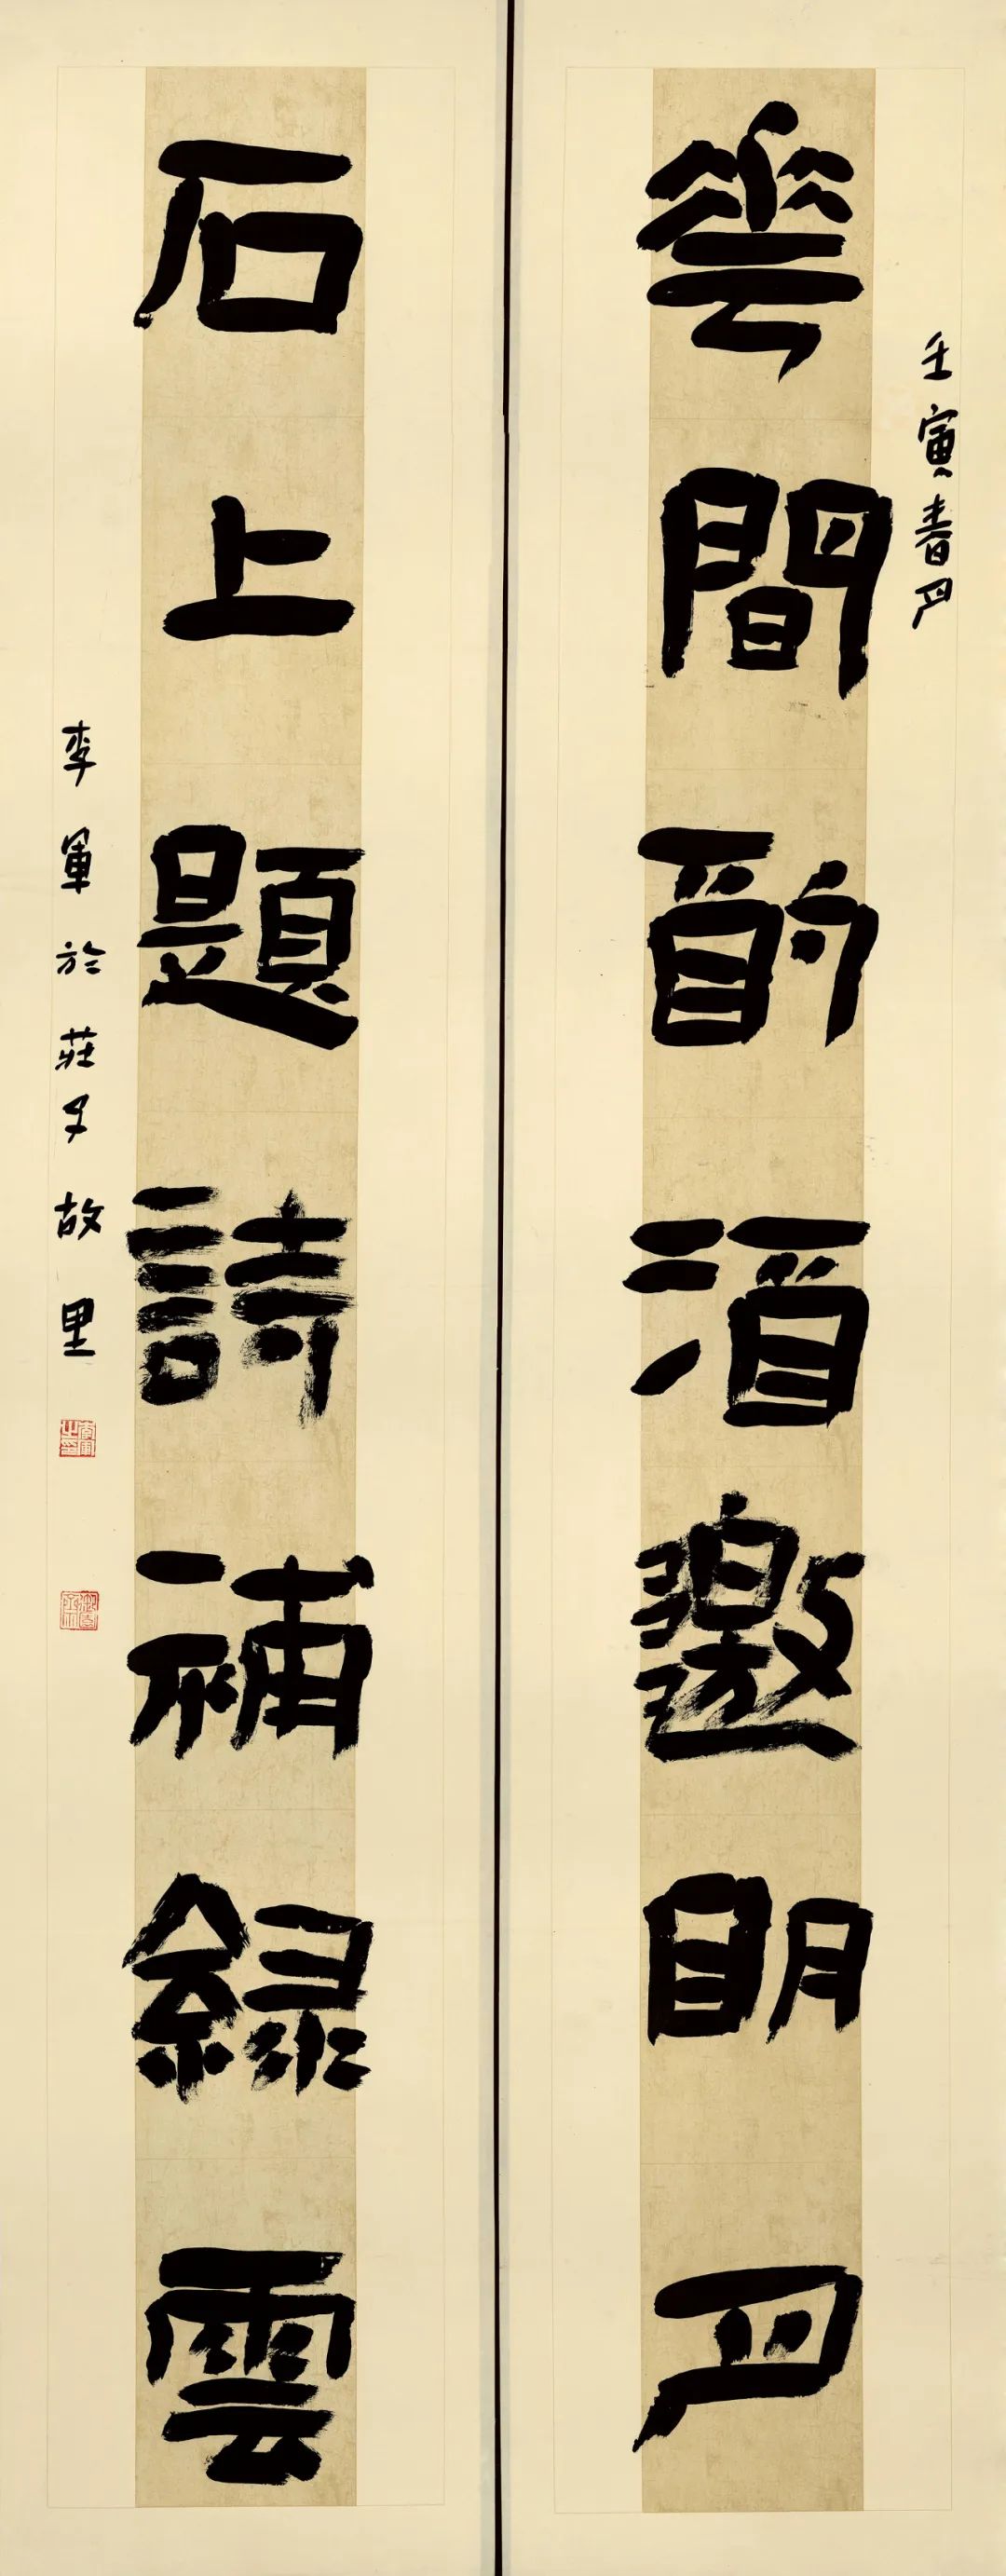 壬寅春月
花間酌酒邀明月
石上題詩補綠雲
李軍於莊子故里